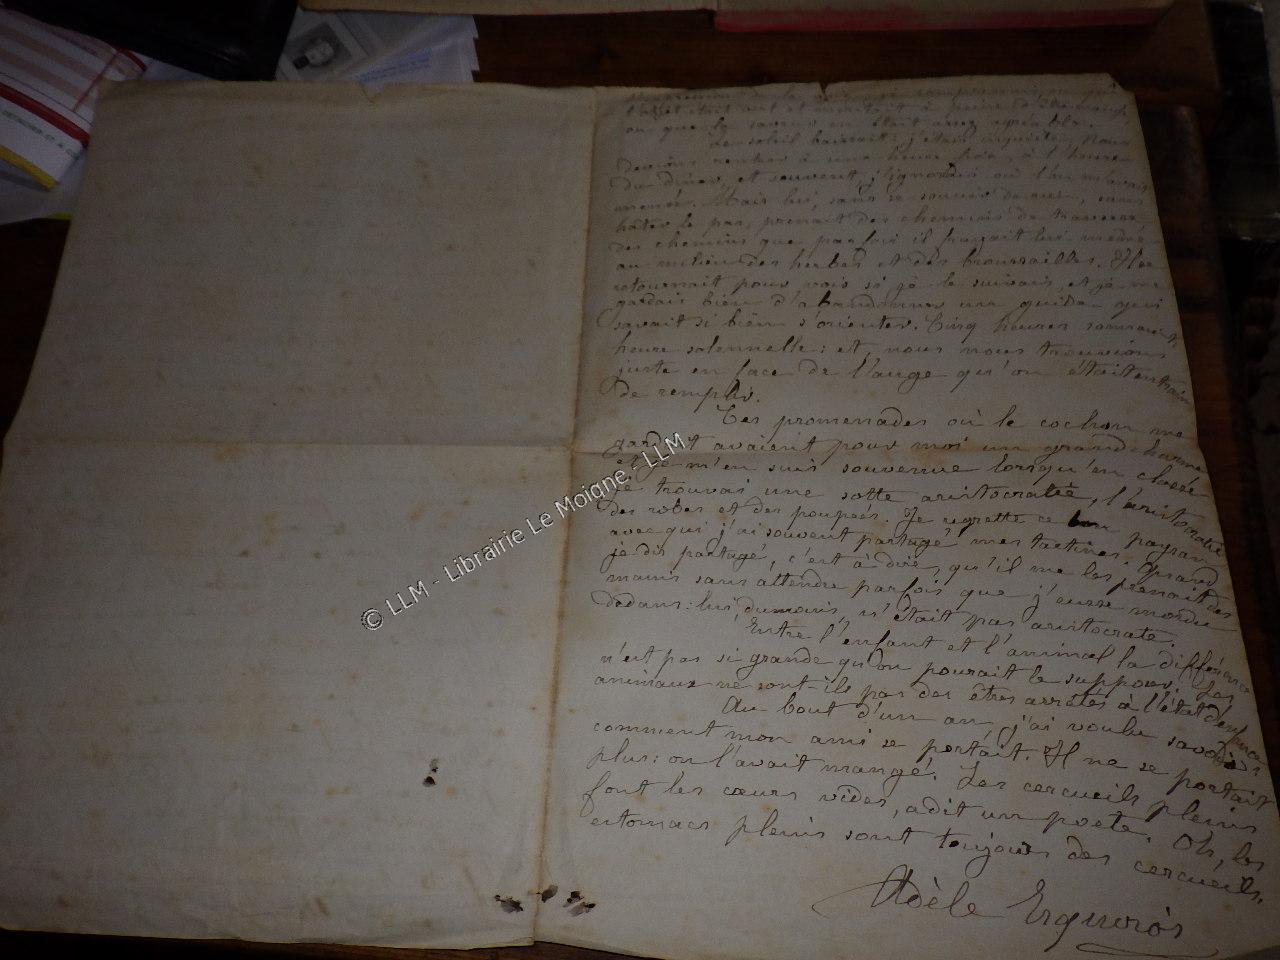 l'objet était vert et
ou que la saveur en était assez agréable.
Le soleil baissait: j'étais inquiète. Nous
devions rentrer à une heure fixe, à l'heure
du dîner, et souvent, j'ignorais où l'on m'avait
menée. Mais lui, sans se soucier de rien, sans
hâter le pas, prenait des chemins de traverse
des chemins que parfois il frayait lui-même
au milieu des herbes et des broussailles. Il se
retournait pour voir si je le suivais, et je me
gardais bien d'abandonner un guide qui
savait si bien s'orienter. Cinq heures sonnaient,
heure solennelle: et nous nous trouvions
juste en face de l'auge qu'on était entrain
de remplir.
Ces promenades où le cochon me
gardait avaient pour moi un grand charme
et je m'en suis souvenue lorsqu'en classe
je trouvai une sotte aristocratie, l'aristocratie
des robes et des poupées. Je regrette ce bon paysan
avec qui j'ai souvent partagé mes tartines. Quand
je dis partagé, c'est à dire, qu'il me les prenait des
mains sans attendre parfois que j'eusse mordu
dedans: lui, du moins, n'était pas aristocrate.
Entre l'enfant et l'animal la différence
n'est pas si grande qu'on pourait le supposer. Les
animaux ne sont-ils pas des êtres arrêtés à l'état d'enfance
Au bout d'un an, j'ai voulu savoir
comment mon ami se portait. Il ne se portait
plus: on l'avait mangé. Les cercueils pleins
font les cœurs vides, a dit un poete. Oh, les
estomacs pleins sont toujours des cercueils.
Adèle Esquiros
© LLM - Librairie Le Moigne - LLM